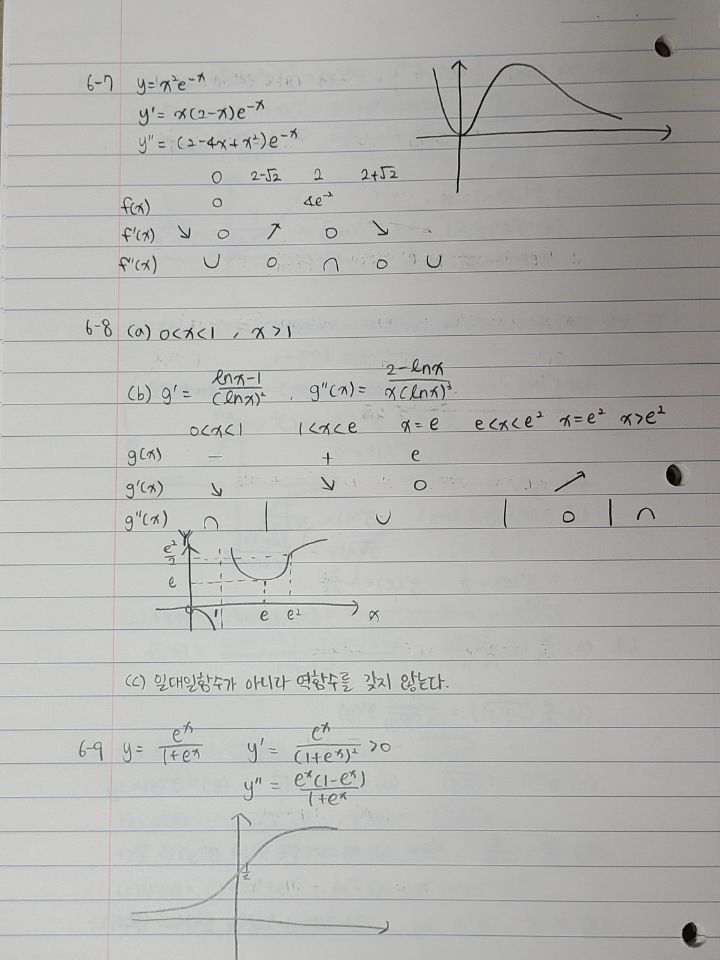 6-7 y = x²e^-x
y' = x(2-x)e^-x
y'' = (2-4x+x²)e^-x
0 2-√2 2 2+√2
f(x) 0 4e^-2
f'(x) ↘ 0 ↗ 0 ↘
f''(x) ∪ 0 ∩ 0 ∪
6-8 (a) 0<x<1 , x>1
(b) g' = (lnx-1)/(lnx)² , g''(x) = (2-lnx)/(x(lnx)³)
0<x<1 1<x<e x=e e<x<e² x=e² x>e²
g(x) - + e
g'(x) ↘ ↘ 0 ↗
g''(x) ∩ | ∪ | 0 | ∩
e²/2
e
0 1 e e² x
(c) 일대일함수가 아니라 역함수를 갖지 않는다.
6-9 y = e^x/(1+e^x) y' = e^x/(1+e^x)² >0
y'' = e^x(1-e^x)/(1+e^x)
1/2